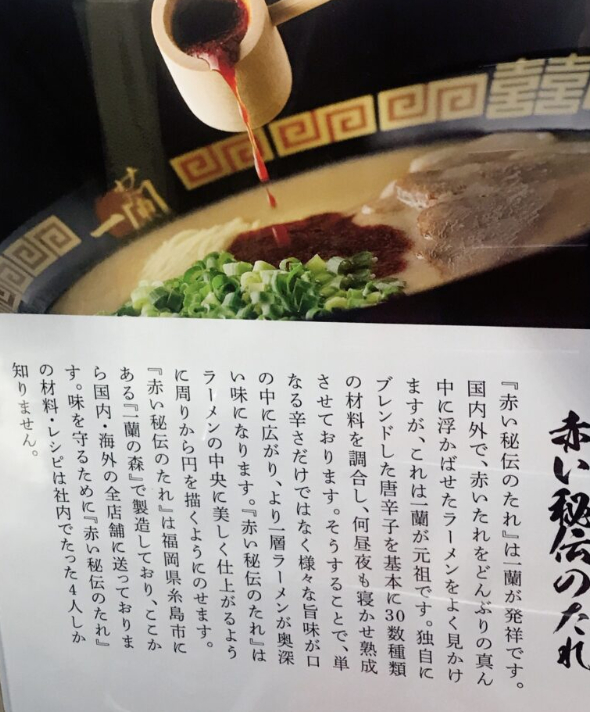 一蘭
赤い秘伝のたれ
『赤い秘伝のたれ』は一蘭が発祥です。
国内外で、赤いたれをどんぶりの真ん
中に浮かばせたラーメンをよく見かけ
ますが、これは一蘭が元祖です。独自に
ブレンドした唐辛子を基本に30数種類
の材料を調合し、何昼夜も寝かせ熟成
させております。そうすることで、単
なる辛さだけではなく様々な旨味が口
の中に広がり、より一層ラーメンが奥深
い味になります。『赤い秘伝のたれ』は
ラーメンの中央に美しく仕上がるよう
に周りから円を描くようにのせます。
『赤い秘伝のたれ』は福岡県糸島市に
ある『一蘭の森』で製造しており、ここか
ら国内・海外の全店舗に送っておりま
す。味を守るために『赤い秘伝のたれ』
の材料・レシピは社内でたった4人しか
知りません。